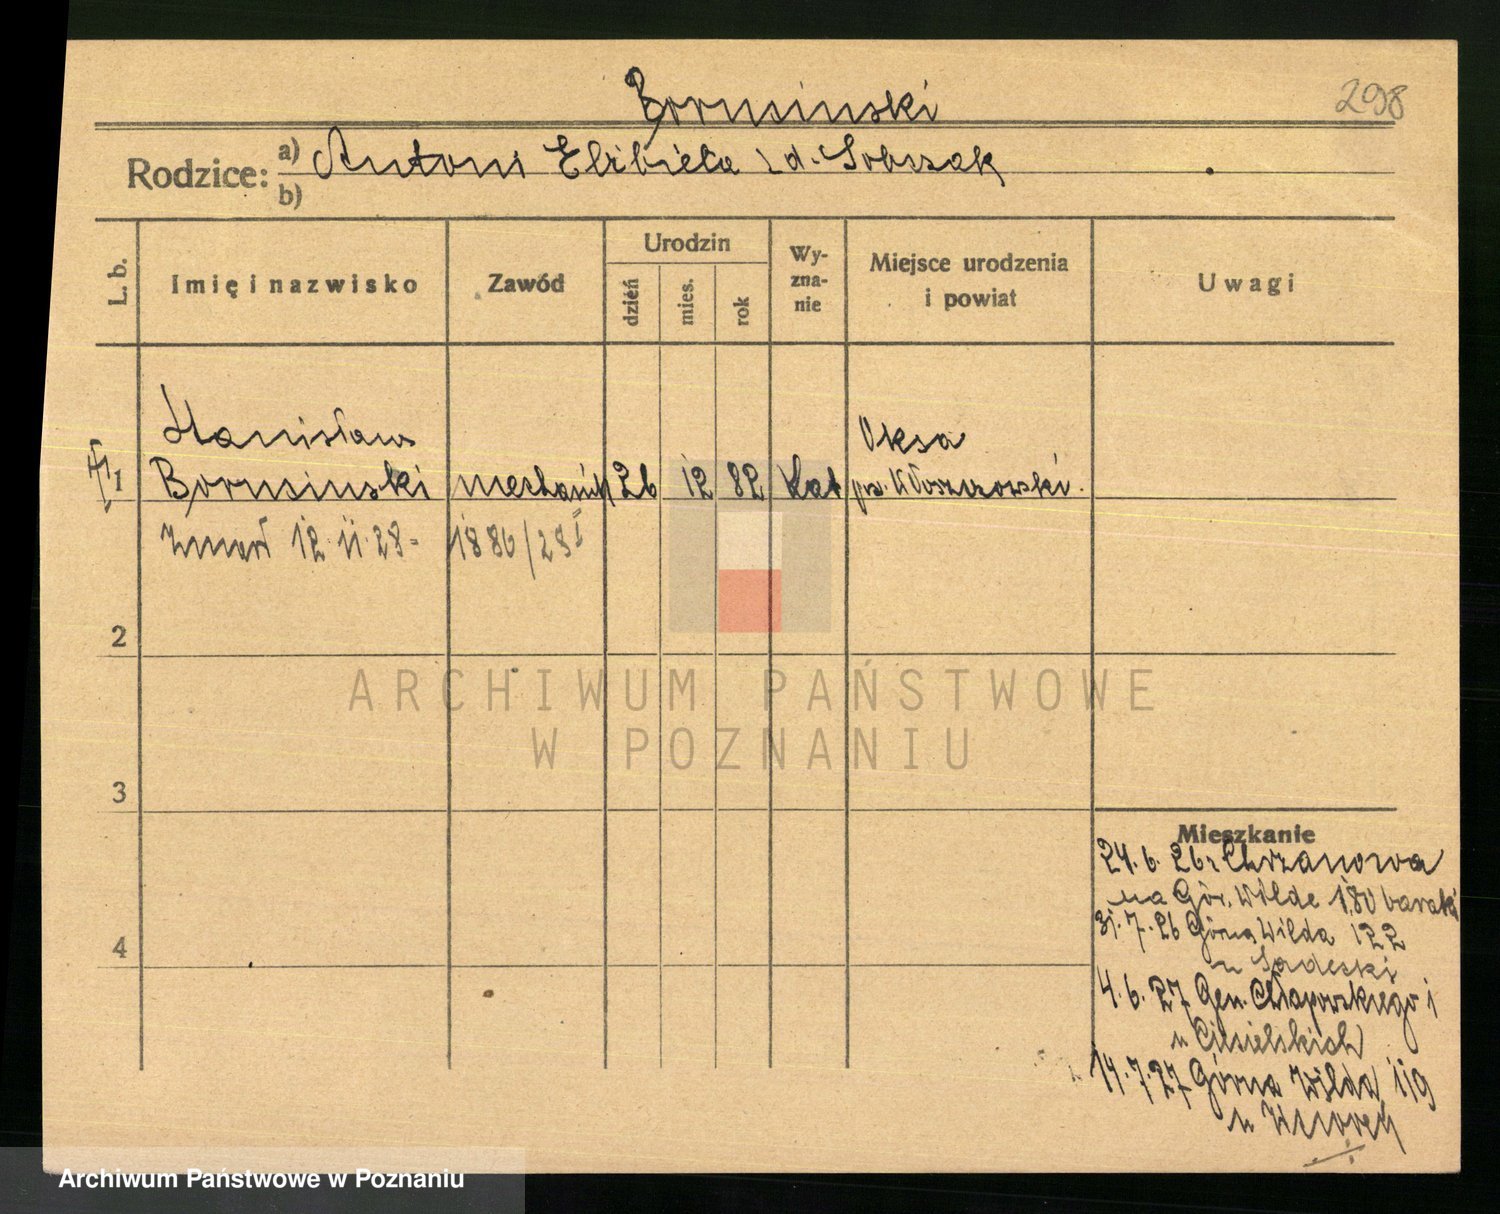 Borusinski
298
Rodzice: a) Antoni Elżbieta z d. Sobczak
b)
L. b.
Imię i nazwisko
Zawód
Urodzin
dzień
mies.
rok
Wy-
zna-
nie
Miejsce urodzenia
i powiat
Uwagi
Stanisław
Oksa
1 Borusinski mechanik 26 12 82 kat pow. Włoszczowski.
zmarł 12.11.28- 1886/28 I
2
ARCHIWUM PAŃSTWOWE
W POZNANIU
3
Mieszkanie
24.6.26 r Chrzanowa
na Gór. Wilde 180 baraki
4
31.7.26 Górna Wilda 122
u Sadeski
4.6.27 Gen. Chłapowskiego 1
u Ciesielskich
14.7.27 Górna Wilda 119
u
Archiwum Państwowe w Poznaniu